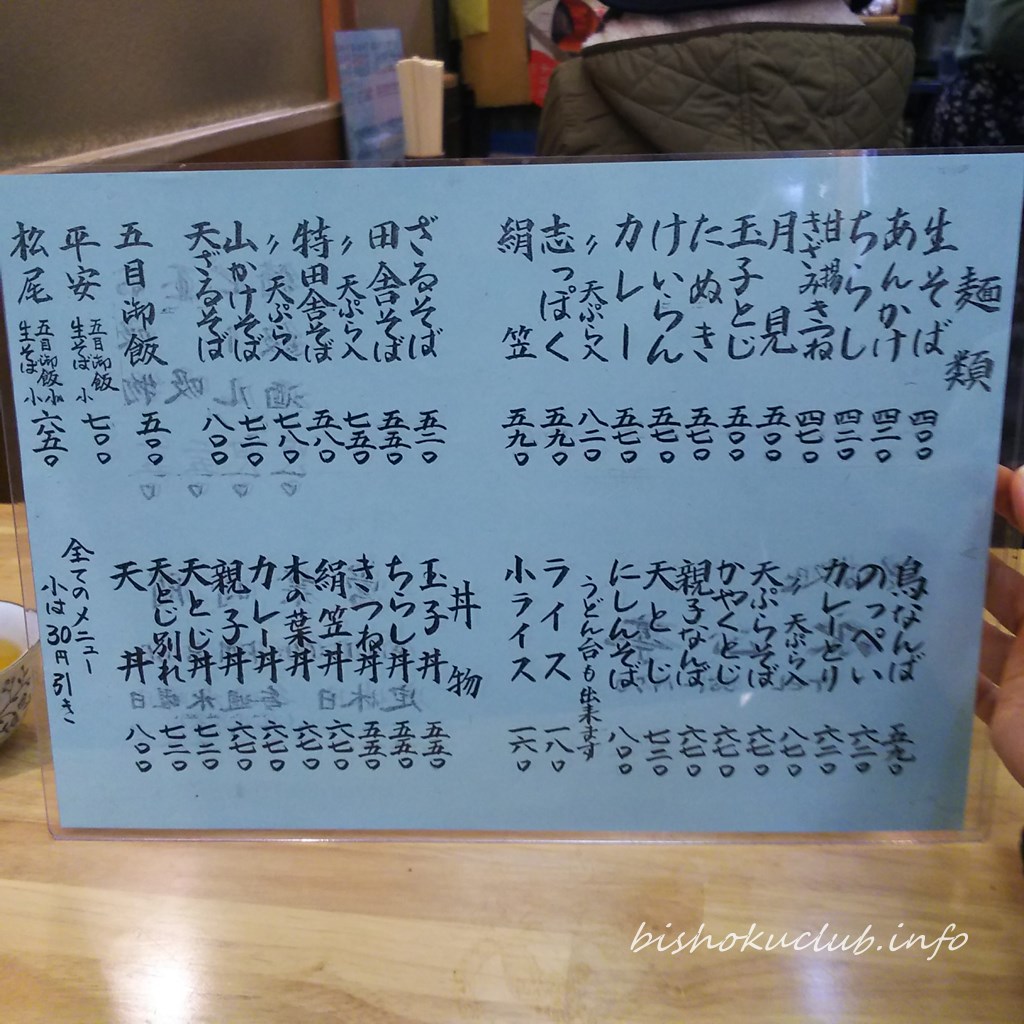 麺類
生そば 四〇〇
あんかけ 四二〇
ちらし 四二〇
甘揚きざみきつね 四七〇
月見 五〇〇
玉子とじ 五〇〇
たぬき 五七〇
けいらん 五七〇
カレー 五七〇
〃 天ぷら入 八二〇
志っぽく 五九〇
絹笠 五九〇
ざるそば 五二〇
田舎そば 五五〇
〃 天ぷら入 七五〇
特田舎そば 五八〇
〃 天ぷら入 七八〇
山かけそば 七二〇
天ざるそば 八〇〇
五目御飯 五〇〇
平安 五目御飯 生そば 小 七〇〇
松尾 五目御飯小 生そば 小 六五〇
鳥なんば 五九〇
のっぺい 六二〇
カレーとり 六二〇
〃 天ぷら入 八七〇
天ぷらそば 六七〇
かやくとじ 六七〇
親子なんば 六七〇
天とじ 七二〇
にしんそば 八〇〇
うどん台も出来ます
ライス 一八〇
小ライス 一六〇
丼物
玉子丼 五五〇
ちらし丼 五五〇
きつね丼 五五〇
絹笠丼 六七〇
木の葉丼 六七〇
カレー丼 六七〇
親子丼 六七〇
天とじ丼 七二〇
天とじ別れ 七二〇
天丼 八〇〇
全てのメニュー
小は30円引き
bishokuclub.info